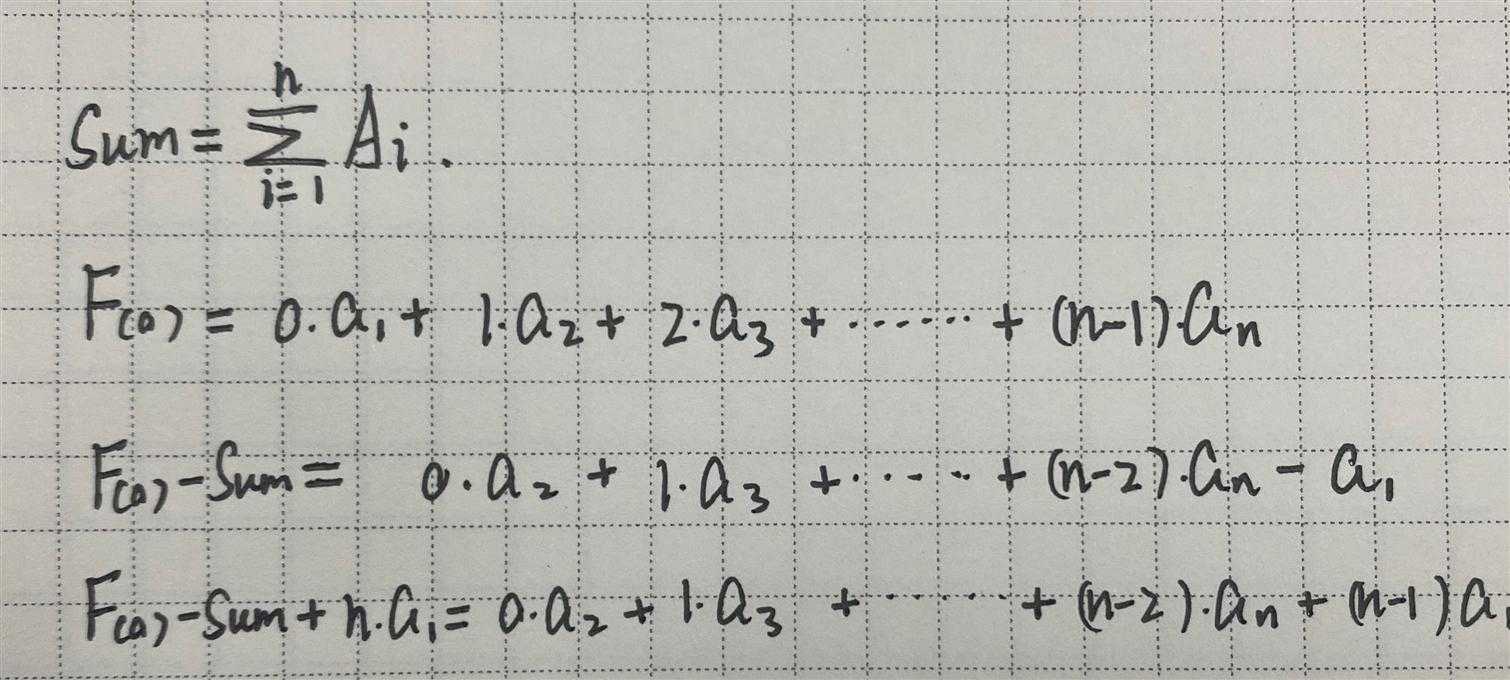 Sum = \sum_{i=1}^{n} A_i.
F_{(0)} = 0·a_1 + 1·a_2 + 2·a_3 + ······ + (n-1)·a_n
F_{(0)} - Sum = 0·a_2 + 1·a_3 + ······ + (n-2)·a_n - a_1
F_{(0)} - Sum + n·a_1 = 0·a_2 + 1·a_3 + ······ + (n-2)·a_n + (n-1)a_1